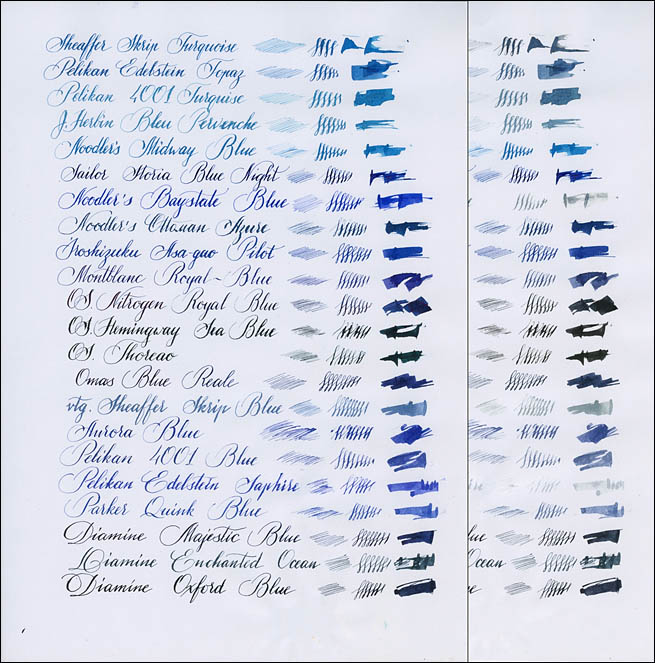 Sheaffer Skrip Turquoise
Pelikan Edelstein Topaz
Pelikan 4001 Turquise
J. Herbin Bleu Pervenche
Noodler's Midway Blue
Sailor Storia Blue Night
Noodler's Baystate Blue
Noodler's Ottoman Azure
Iroshizuku Asa-gao Pilot
Montblanc Royal-Blue
OS Nitrogen Royal Blue
OS Hemingway Sea Blue
OS. Thoreao
Omas Blue Reale
vtg. Sheaffer Skrip Blue
Aurora Blue
Pelikan 4001 Blue
Pelikan Edelstein Saphire
Parker Quink Blue
Diamine Majestic Blue lue
Diamine Enchanted Ocean cean
Diamine Oxford Blue